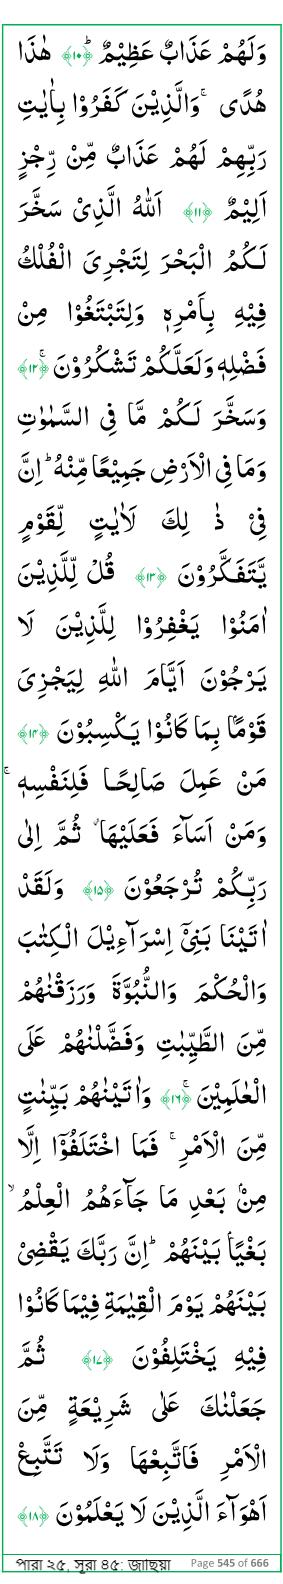 وَلَهُمْ عَذَابٌ عَظِيْمٌ ؕ﴿۱۰﴾ هٰذَا
هُدًى ۚ وَالَّذِيْنَ كَفَرُوْا بِاٰيٰتِ
رَبِّهِمْ لَهُمْ عَذَابٌ مِّنْ رِّجْزٍ
اَلِيْمٌ ﴿۱۱﴾ اَللّٰهُ الَّذِىْ سَخَّرَ
لَكُمُ الْبَحْرَ لِتَجْرِىَ الْفُلْكُ
فِيْهِ بِاَمْرِهٖ وَلِتَبْتَغُوْا مِنْ
فَضْلِهٖ وَلَعَلَّكُمْ تَشْكُرُوْنَ ۚ﴿۱۲﴾
وَسَخَّرَ لَكُمْ مَّا فِى السَّمٰوٰتِ
وَمَا فِى الْاَرْضِ جَمِيْعًا مِّنْهُ ؕ اِنَّ
فِىْ ذٰ لِكَ لَاٰيٰتٍ لِّقَوْمٍ
يَّتَفَكَّرُوْنَ ﴿۱۳﴾ قُلْ لِّلَّذِيْنَ
اٰمَنُوْا يَغْفِرُوْا لِلَّذِيْنَ لَا
يَرْجُوْنَ اَيَّامَ اللّٰهِ لِيَجْزِىَ
قَوْمًۢا بِمَا كَانُوْا يَكْسِبُوْنَ ﴿۱۴﴾
مَنْ عَمِلَ صَالِحًـا فَلِنَفْسِهٖ ۚ
وَمَنْ اَسَآءَ فَعَلَيْهَا ؗ ثُمَّ اِلٰى
رَبِّكُمْ تُرْجَعُوْنَ ﴿۱۵﴾ وَلَقَدْ
اٰتَيْنَا بَنِىْۤ اِسْرَآءِيْلَ الْكِتٰبَ
وَالْحُكْمَ وَالنُّبُوَّةَ وَرَزَقْنٰهُمْ
مِّنَ الطَّيِّبٰتِ وَفَضَّلْنٰهُمْ عَلَى
الْعٰلَمِيْنَ ۚ﴿۱۶﴾ وَاٰتَيْنٰهُمْ بَيِّنٰتٍ
مِّنَ الْاَمْرِ ۚ فَمَا اخْتَلَفُوْۤا اِلَّا
مِنْۢ بَعْدِ مَا جَآءَهُمُ الْعِلْمُ ۙ
بَغْيًاۢ بَيْنَهُمْ ؕ اِنَّ رَبَّكَ يَقْضِىْ
بَيْنَهُمْ يَوْمَ الْقِيٰمَةِ فِيْمَا كَانُوْا
فِيْهِ يَخْتَلِفُوْنَ ﴿۱۷﴾ ثُمَّ
جَعَلْنٰكَ عَلٰى شَرِيْعَةٍ مِّنَ
الْاَمْرِ فَاتَّبِعْهَا وَلَا تَتَّبِعْ
اَهْوَآءَ الَّذِيْنَ لَا يَعْلَمُوْنَ ﴿۱۸﴾
পারা ২৫, সূরা ৪৫: জাছিয়া Page 545 of 666